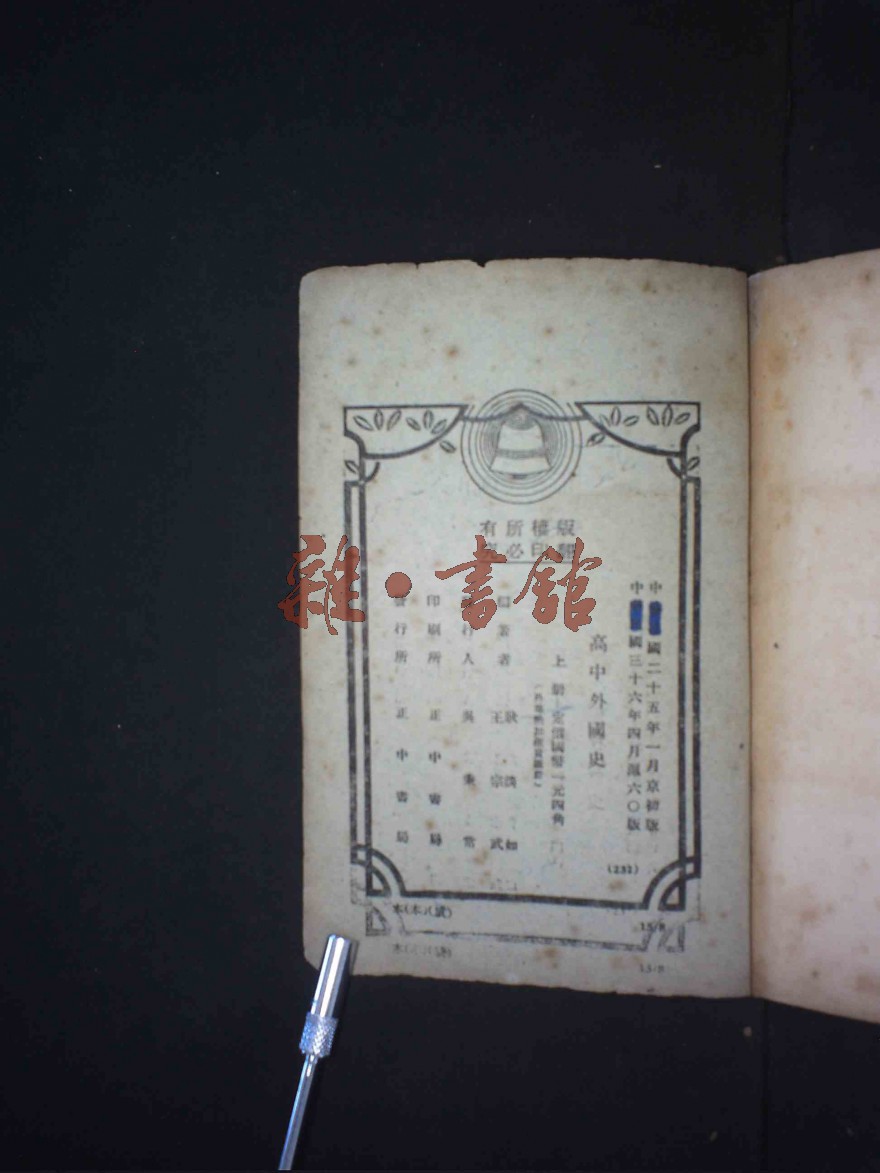 版權所有
翻印必究
中 國二十五年一月京初版
中 國三十六年四月滬六〇版
(232)
高中外國史
上冊 定價國幣一元四角
編著者 耿淡如 王宗武
發行人 吳秉常
印刷所 正中書局
發行所 正中書局
15/8
雜·書館